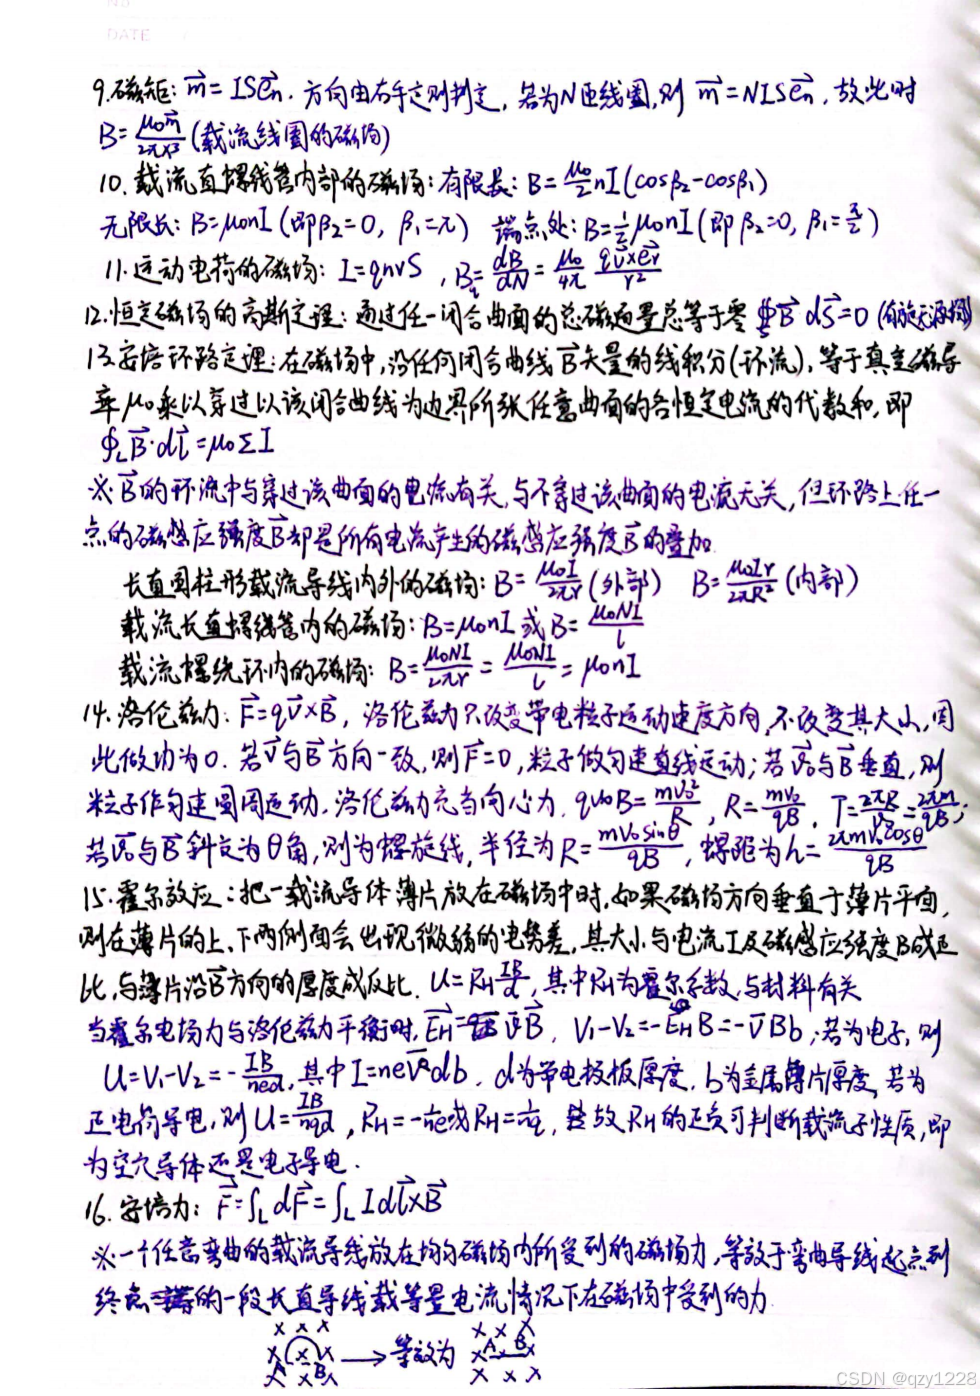 NO
DATE
9.磁矩: m⃗=ISe⃗n. 方向由右手定则判定, 若为N匝线圈, 则 m⃗=NISe⃗n, 故此时
B=μ0m⃗/2πx³ (载流线圈的磁场)
10. 载流直螺线管内部的磁场: 有限长: B=μ0/2 nI(cosβ2-cosβ1)
无限长: B=μ0nI (即β2=0, β1=π) 端点处: B=1/2 μ0nI (即β2=0, β1=π/2)
11.运动电荷的磁场: I=qnvS, Bq=dB/dN=μ0/4π qv⃗×e⃗r/r²
12.恒定磁场的高斯定理: 通过任一闭合曲面的总磁通量总等于零 ∯B⃗ dS⃗=0 (有旋无源场)
13.安培环路定理: 在磁场中, 沿任何闭合曲线B⃗矢量的线积分(环流), 等于真空磁导
率μ0乘以穿过以该闭合曲线为边界所张任意曲面的各恒定电流的代数和, 即
∮L B⃗·dl⃗=μ0ΣI
※B⃗的环流中与穿过该曲面的电流有关, 与不穿过该曲面的电流无关, 但环路上任一
点的磁感应强度B⃗却是所有电流产生的磁感应强度B⃗的叠加
长直圆柱形载流导线内外的磁场: B=μ0I/2πr (外部) B=μ0Ir/2πR² (内部)
载流长直螺线管内的磁场: B=μ0nI 或 B=μ0NI/l
载流螺绕环内的磁场: B=μ0NI/2πr=μ0NI/l=μ0nI
14.洛伦兹力: F⃗=qv⃗×B⃗, 洛伦兹力只改变带电粒子运动速度方向, 不改变其大小, 因
此做功为0. 若v⃗与B⃗方向一致, 则F⃗=0, 粒子做匀速直线运动; 若v⃗0与B⃗垂直, 则
粒子作匀速圆周运动. 洛伦兹力充当向心力. qv0B=mv0²/R, R=mv0/qB, T=2πR/v0=2πm/qB;
若v⃗0与B⃗斜交为θ角, 则为螺旋线, 半径为R=mv0sinθ/qB, 螺距为h=2πmv0cosθ/qB
15.霍尔效应: 把一载流导体薄片放在磁场中时, 如果磁场方向垂直于薄片平面,
则在薄片的上、下两侧面会出现微弱的电势差, 其大小与电流I及磁感应强度B成正
比, 与薄片沿B⃗方向的厚度成反比. U=RH IB/d, 其中RH为霍尔系数, 与材料有关
当霍尔电场力与洛伦兹力平衡时, E⃗H= v⃗B⃗, V1-V2=-EHB=-v̄Bb; 若为电子, 则
U=V1-V2=-IB/ned, 其中I=nev̄db. d为带电极板厚度, b为金属薄片厚度, 若为
正电荷导电, 则U=IB/nqd, RH=-1/ne或RH=1/nq, 故RH的正负可判断载流子性质, 即
为空穴导体还是电子导电.
16.安培力: F⃗=∫L dF⃗=∫L Idl⃗×B⃗
※一个任意弯曲的载流导线放在均匀磁场内所受到的磁场力, 等效于弯曲导线起点到
终点的一段长直导线载等量电流情况下在磁场中受到的力
A B → 等效为 A B
CSDN @qzy1228